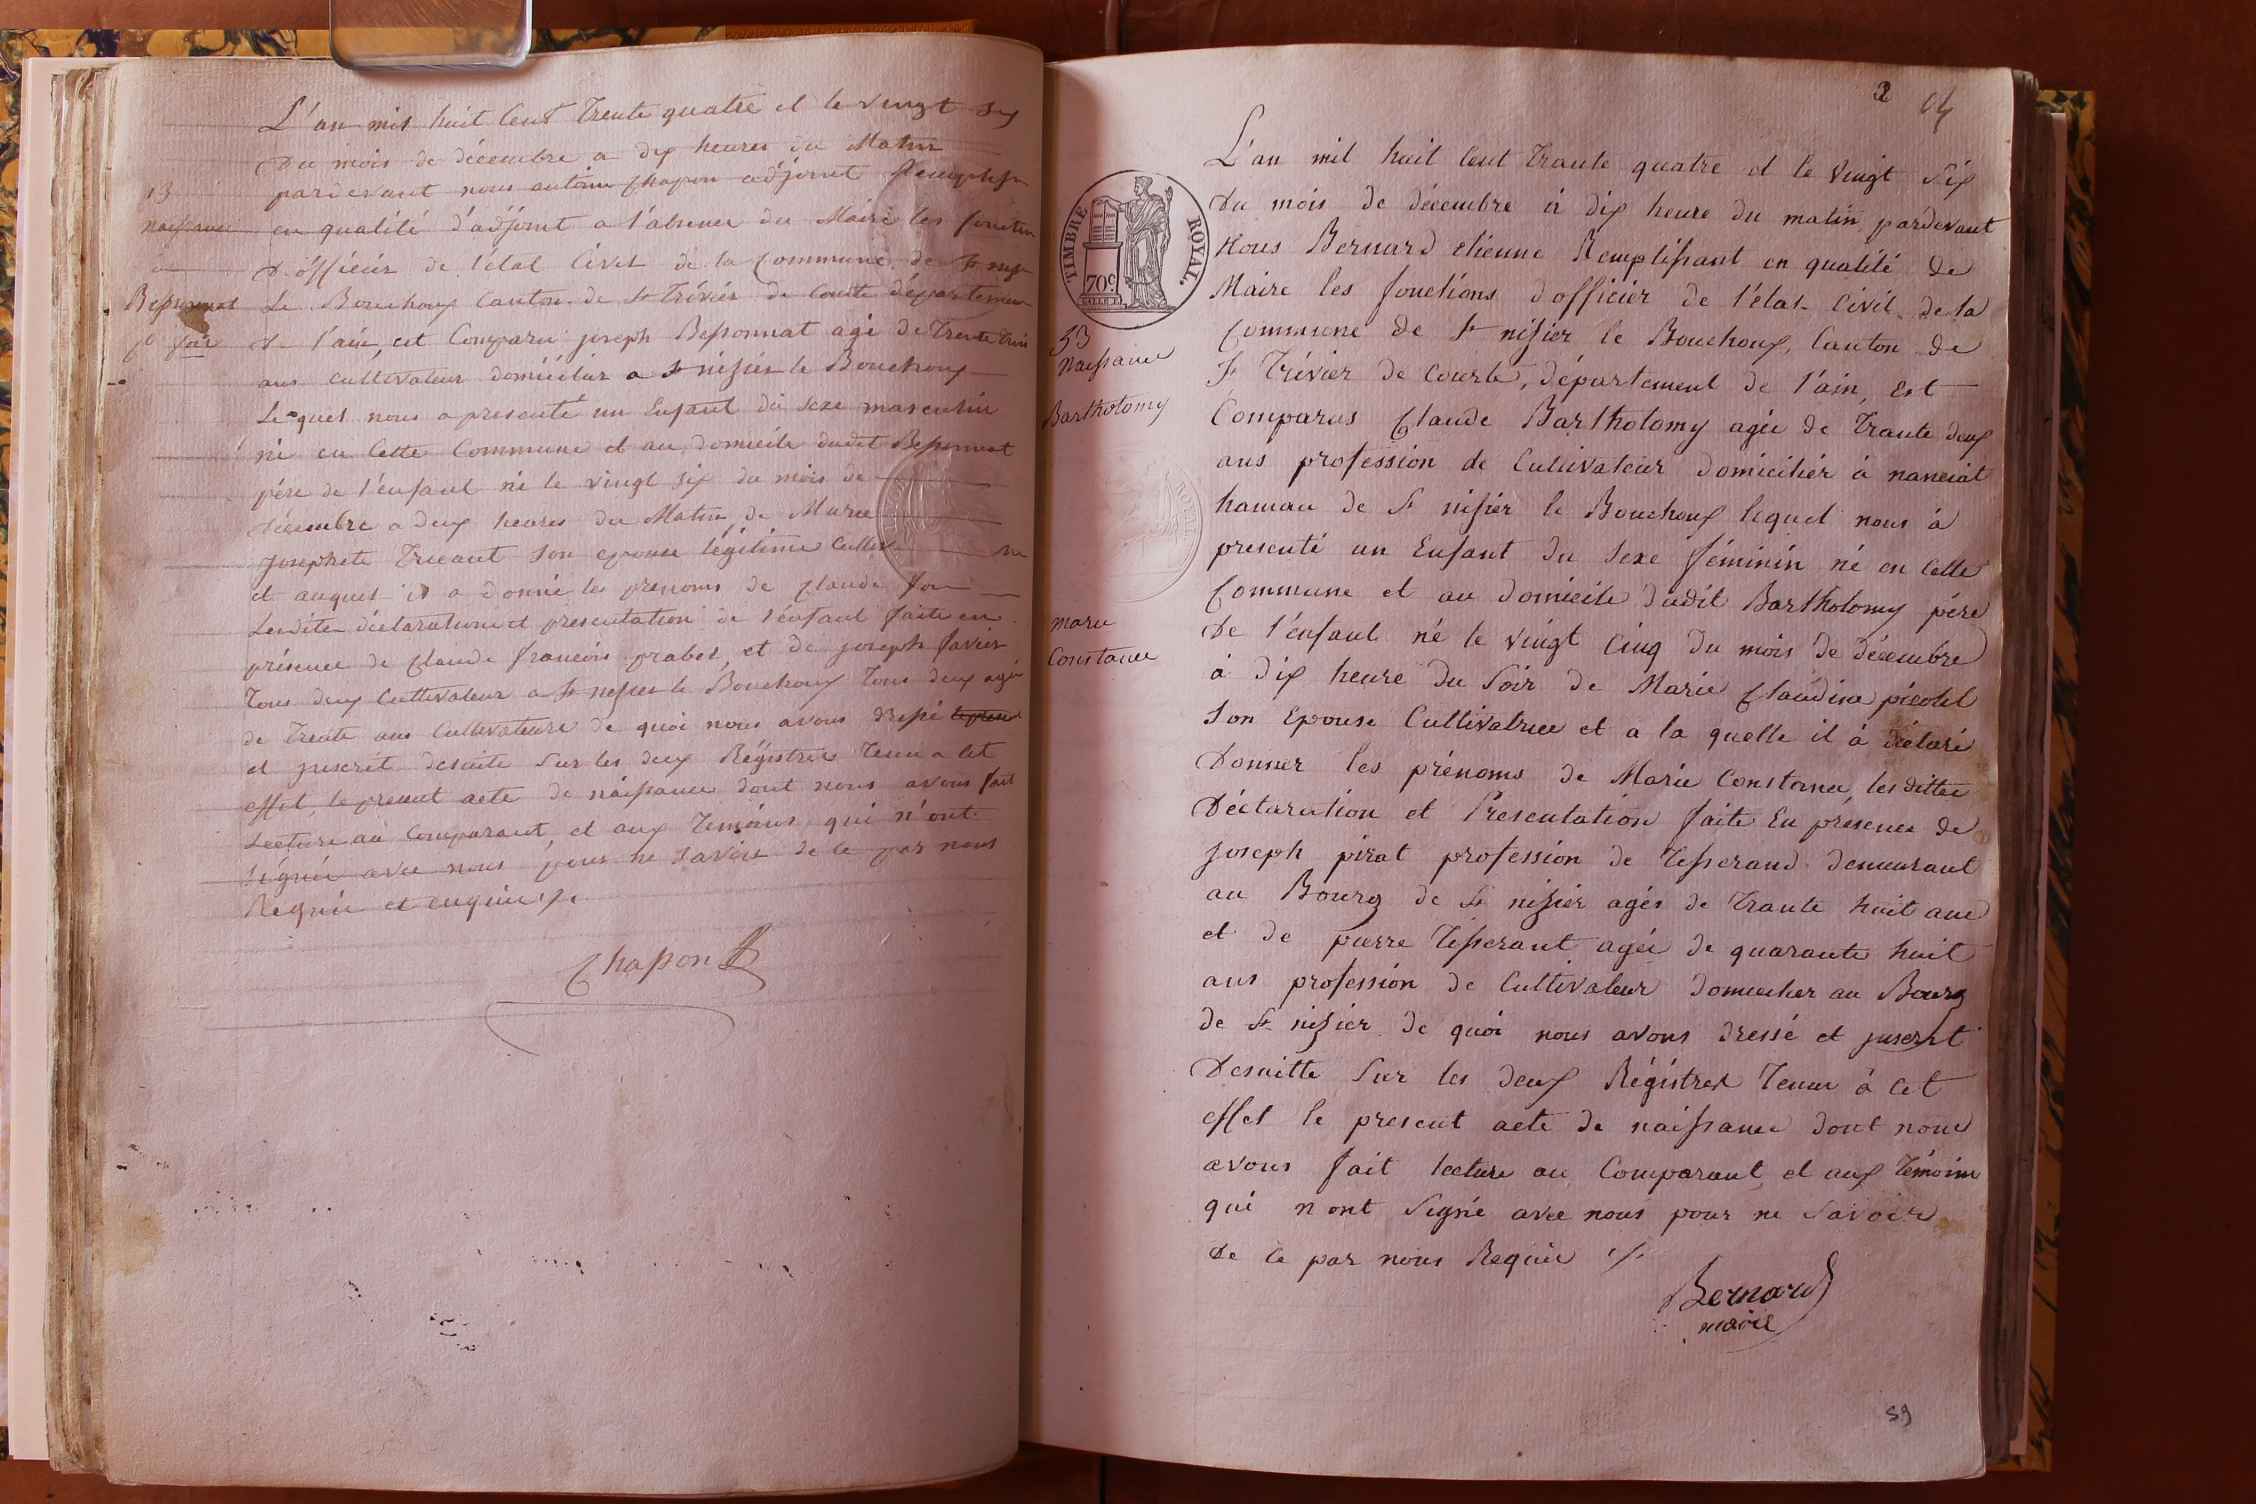 L'an mil huit Cent Trente quatre et le vingt six
Du mois de décembre a dix heures du Matin
pardevant nous antoine Chapon adjoint Remplissan
en qualité d'adjoint a l'absence du Maire les fonction
D'officier de l'état Civil de la Commune de St nizier
Le Bouchoux Canton de St Trévier de Courte département
de l'ain, est Comparu joseph Bessonnat agé de Trente trois
ans cultivateur domicilier a St nisier le Bouchoux
Lequel nous a presenté un Enfant du Sexe masculin
né en Cette Commune et au domicile dudit Bessonnat
pére de l'enfant né le vingt six du mois de
décembre a deux heures du Matin, de Marie
josephete son epouse légitime Cultiv
et auquel il a donné les prenoms de Claude
Lesdites déclaration et presentation de l'énfant faite en
présence de Claude francois prabel, et de joseph favier
Tous deux Cultivateur a St nisier le Bouchoux Tous deux agé
de Trente ans Cultivateure de quoi nous avons Dressé le present
et juscrit desuite Sur les deux Régistres Tenu a Cet
effet, le present acte de naissance dont nous avons fait
Lecture au Comparant, et aux Témoins qui n'ont
Signé avec nous pour ne savoir de ce par nous
Requie et enquie ./.
Chapon
13
naissance
Bessonnat
2 04
TIMBRE ROYAL.
70c.
L'an mil huit Cent Traute quatre et le Vingt Six
Du mois de décembre à dix heure du matin pardevant
Nous Bernard etienne Remplissant en qualité de
Maire les fonctions d officier de l'état Civil de la
Commune de St nisier le Bouchoux, Canton de
St Trévier de Courte, département de l'ain, Est
Comparus Claude Bartholomy agée de Traute deux
ans profession de Cultivateur domicilier à nanciat
hamau de St nisier le Bouchoux lequel nous à
presenté un Enfant du Sexe féminin né en Cette
Commune et au domicile dudit Bartholomy pére
De l'enfant né le Vingt Cinq Du mois de décembre
à dix heure du Soir de Marie Claudine picolet
Son Epouse Cultivatrice et a la quelle il à déclaré
Donner les prénoms de Marie Constance, les dittes
Déclaration et Presentation faite En presence de
Joseph pirat profession de Tesserand demeurant
au Bourg de St nizier agés de Traute huit ans
et de pierre Tesserant agée de quarante huit
ans profession de Cultivateur domicilier au Bourg
de St nizier de quoi nous avons dressé et juscrit
Desuitte Sur les deux Régistres Tenu à Cet
effet le present acte de naissance dont nous
avons fait lecture au Comparant et aux Témoins
qui n ont Signé avec nous pour ne Savoir
De ce par nous Requie ./.
Bernard
maire
53
Naissance
Bartholomy
marie
Constance
59